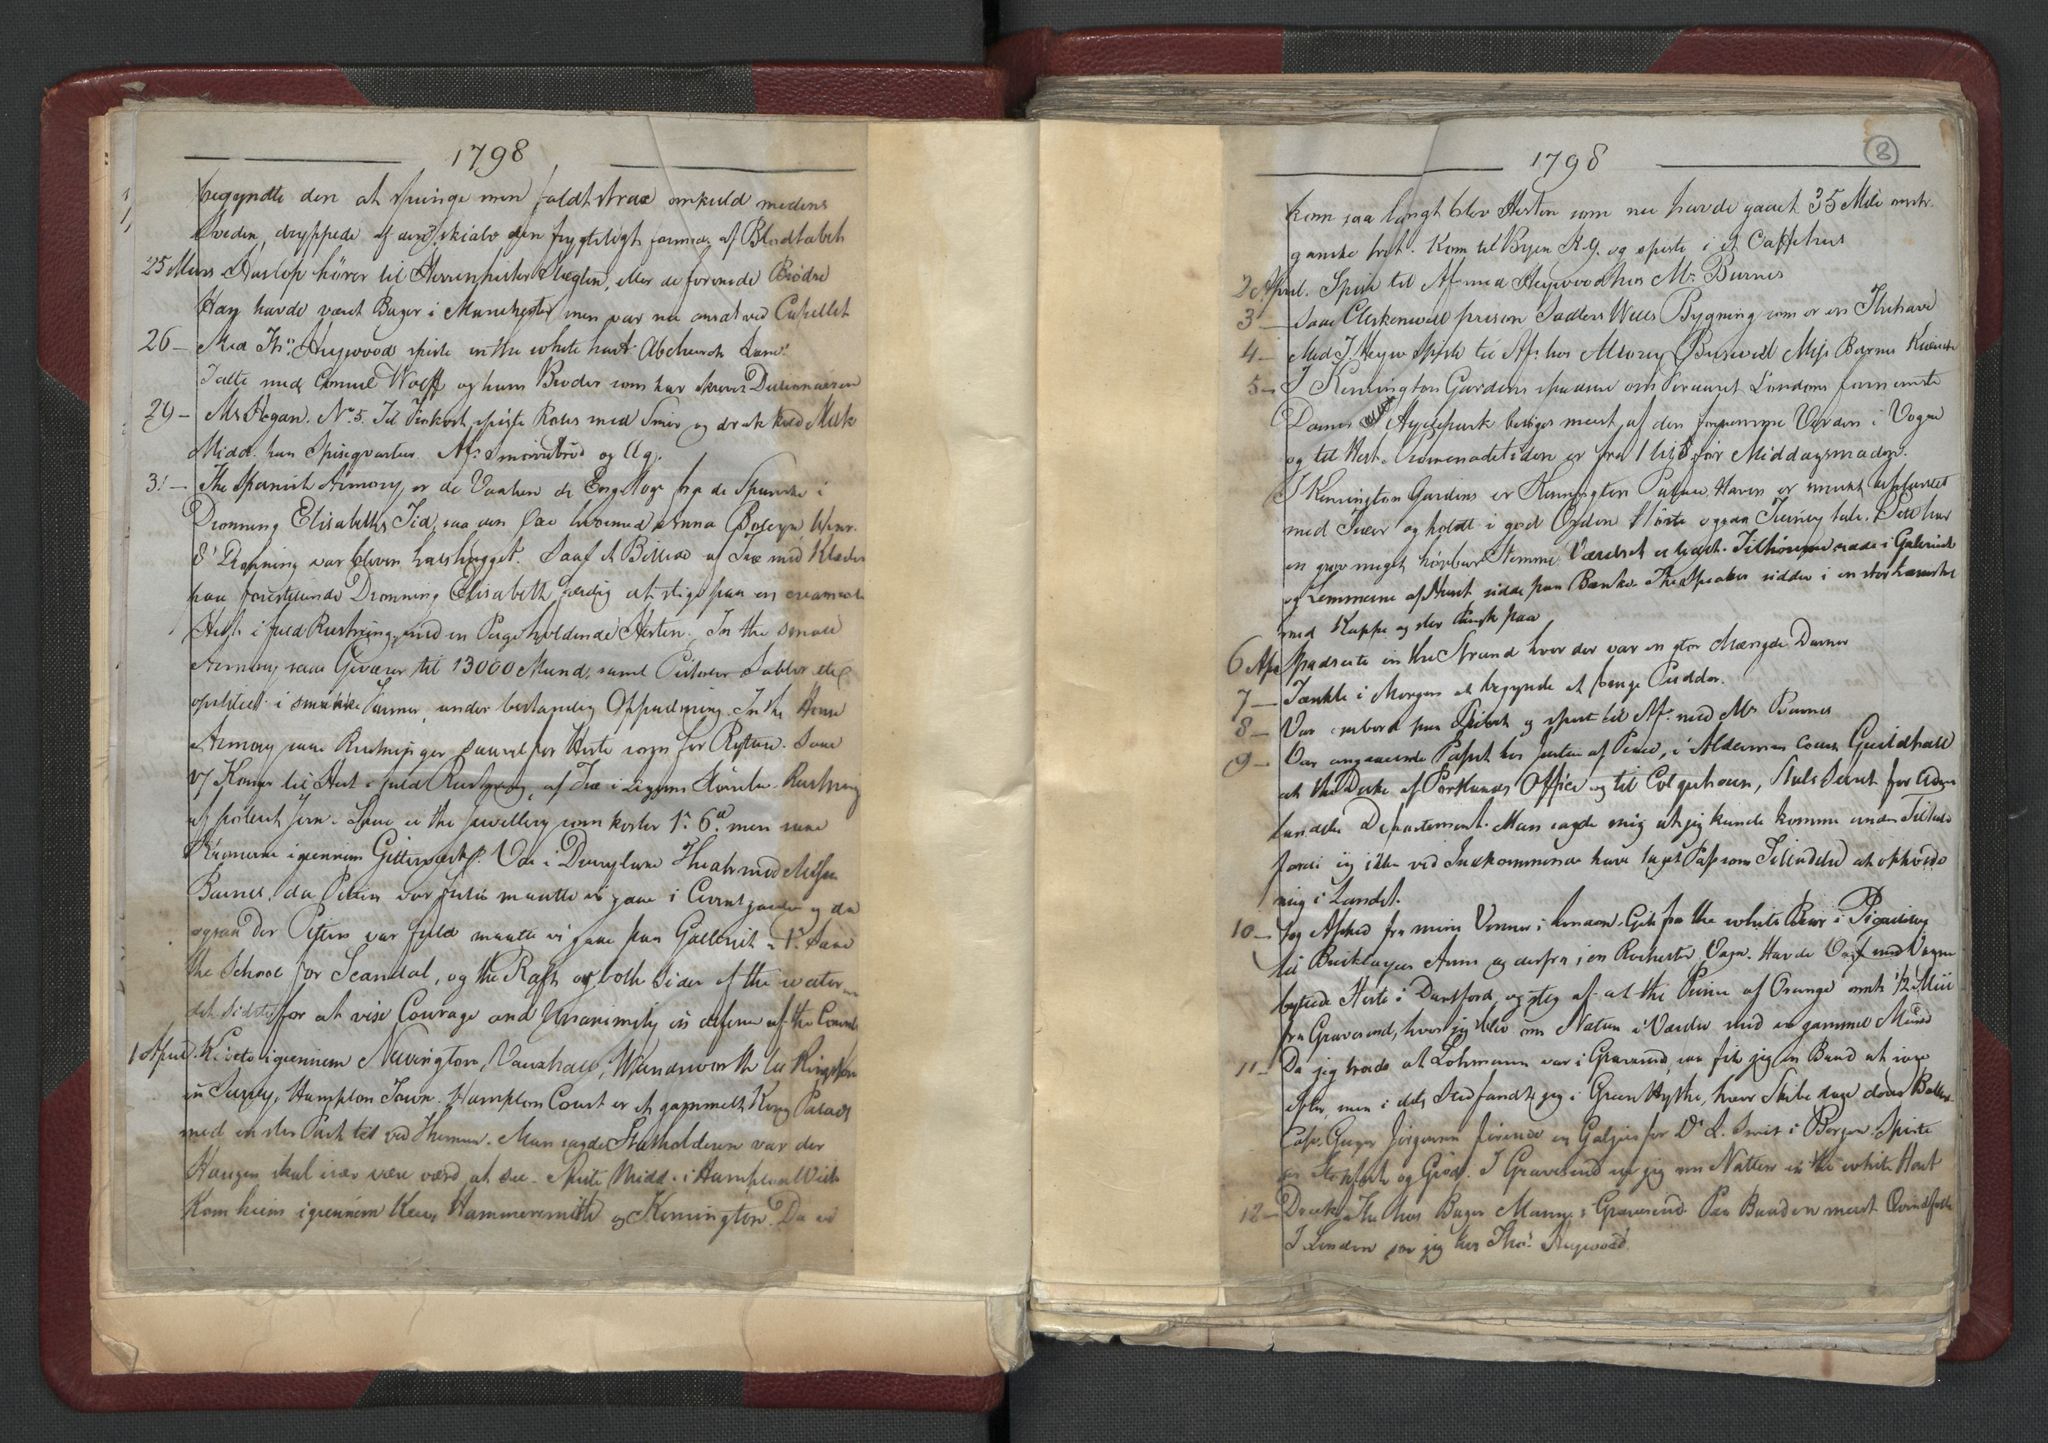 1798
begyndte den at springe men faldt strax omkuld medens
Sveden dryppede af den, skialv den frygteligt formed. af Blodtabet
25 Mars Haslop hører til Herrenhuter Secten, eller de forenede Brødre
Hay havde været Bager i Manchester men var nu ansat ved Capellet
26 – Med Ths. Heywood spiste in the white hart Abchurch Lane.
Talte med Consul Wolff og hans Broder som har skrevet
29 – Mr. Hogan. No 5. Til Frokost spiste Rolls med Smør og drak kold Melk
Midd. paa Spiseqvarter. Af: Smørrebrød og Æg.
31 – The Spanish Armory, er de Vaaben de Eng. tog fra de Spanske i
Dronning Elisabeths Tid, saa den Øxe hvormed Anna Boleyn, Henr.
8' Dronning var bleven halshugget. Saa et Billede af Træ med Klæder
paa forestillende Dronning Elisabeth færdig at stige paa en
Hest i fuld Rustning, med en Page holdende Hesten. In the small
Armory saae Geværer til 13000 Mand, samt Pistoler Sabler etc
opstillet i smukke Former, under bestandig Oppudsning. In the Horse
Armory saae Rustninger saavel for Heste som for Ryttere. Saae
17 Konger til Hest i fuld Rustning, af Træ i Legems Størrelse. Rustning
af poleret Jern. Saae ei the Jewellery som koster 1s. 6d. men saae
Kronerne igiennem Gitterværk. Var i Drurylane Theater med Misses
Barnes, da Pitten var fuld maatte vi gaae i Coventgarden og da
ogsaa der Pitten var fuld maatte vi gaae paa Galleriet – 1s. Saae
the School for Scandal, og the Raft or both Sides of the water
det sidste for at vise Courage and Unanimity in defense of the Country
1 April. Kiørte igiennem Newington, Vauxhall, Wandsworth til Kingston
in Surry, Hampton Town. Hampton Court er et gammelt Kong. Palads
med en stor Park tæt ved Themsen. Man sagde Statholderen var der
Haugen skal især være værd at see – Spiste Midd. i Hampton Wick
Kom hiem igiennem Kew, Hammersmith og Kensington. Da vi
1798
8
kom saa langt blev Hesten som nu havde gaaet 35 Mile omtr.
ganske træt. Kom til Byen Kl. 9. og spiste i et Caffehus
2 April. Spiste til Af. med Heywood hos Mr. Barnes
3 – Saae Clerkenwell prison Sadlers Wells Bygning som er en Thehave
4 – Med T. Heyw. spiste til Af: hos Misses Barnes
5 – I Kensington Gardens spadsere om Foraaret Londons fornemste
Damer Hydepark besøges meest af den fornemme Verden i Vogne
og til Hest. Promenadetiden er fra 1 til 3 før Middagsmaden.
I Kensington Gardens er Kensington Palace. Haven er smukt opfyldt
med Træer og holdt i god Orden. Hørte ogsaa Tierney tale. Pitt har
en grov meget hørbar Stemme Værelset er lidet. Tilhørerne sidde i Galleriet
og Lemmerne af Huset sidde paa Bænke. The Speaker sidder i en stor Lænestol
med Kappe og stor Paryk paa
6 Apr. Spadserte in the Strand hvor der var en stor Mængde Damer
7 – Tænkte i Morgen at begynde at bruge Pudder.
8 – Var ombord paa Skibet og spiste til Af. med Mr. Barnes
9 – Var angaaende Passet hos Justice of Peace, i Aldermans Court Guildhall
at the Duke of Portlands Office og til Colquhoun, for Uden-
landske Departement. Man sagde mig at jeg kunde komme under Tiltale
fordi jeg ikke ved Inkommende have taget Pas som Tilladelse at opholde
mig i Landet.
10 – Tog Afsked fra mine Venner i London. Gik fra the white Bear i Picadilly
til Bricklayers Arms og derfra i en Rochester Vogn. Havde
byttede Heste i Dartford, og steg af at the Prince of Orange omtr. 1/2 Mil
fra Gravesend, hvor jeg blev om Natten i Værelse med en gammel Mand
11 – Da jeg troede at Lohmann var i Gravesend, saa fik jeg en Baad at roe
efter, men i dets Sted fandt jeg i Green Hythe, hvor Skibe tage deres Ballast
Capt. Jørgensen førende en Galjas for D. L. Smit i Bergen. Spiste
og Grød. I Gravesend var jeg om Natten in the white Hart
12 – Drak The hos Bager Mann i Gravesend. Paa Baaden meest Qvindfolk
I London saa jeg hos Ths. Heywood.